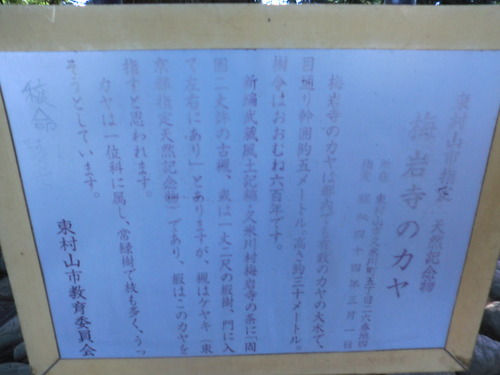 東村山市指定 天然記念物
梅岩寺のカヤ
所在 東村山市久米川町五丁目二六番地
指定 昭和四十四年三月一日
梅岩寺のカヤは都内でも有数のカヤの大木で、
目通り幹囲約五メートル、高さ約三十メートル。
樹令はおおむね六百年です。
新編武蔵風土記稿・久米川村梅岩寺の条に「周
囲一丈許の古槻、或は一丈二尺の榧樹、門に入
て左右にあり」とありますが、槻はケヤキ(東
京都指定天然記念物)であり、榧はこのカヤを
指すと思われます。
カヤは一位科に属し、常緑樹で枝も多く、うっ
そうとしています。
東村山市教育委員会